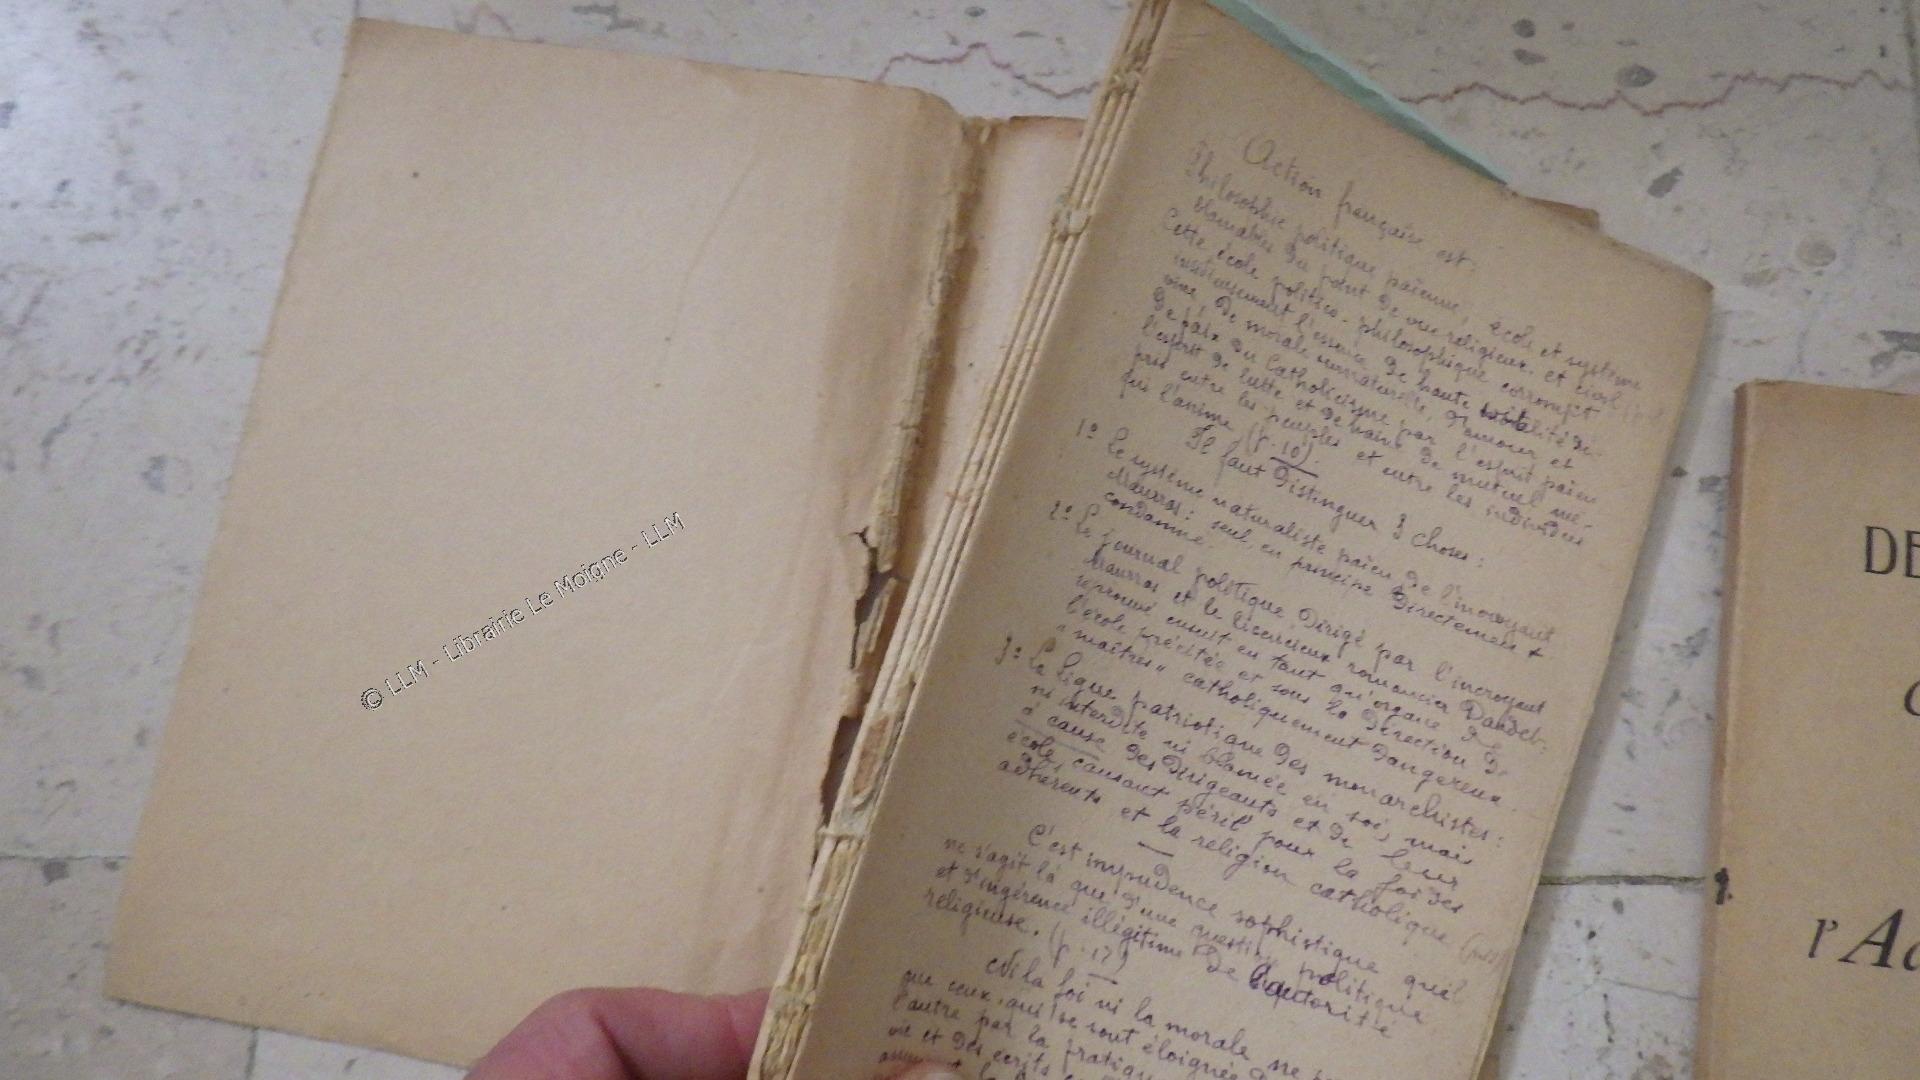 Action française est:
Philosophie politique païenne, école et système
blamables du point de vue religieux et civil
Cette école politico-philosophique corrompt
insidieusement l'essence de haute
vine, de morale surnaturelle, d'amour et
de paix du Catholicisme par l'esprit païen
l'esprit de lutte et de haine de mutuel mé-
pris entre les peuples et entre les individus
qui l'anime (p. 10).
Il faut distinguer 3 choses:
1º Le système naturaliste païen de l'incroyant
Maurras: seul, en principe directement &
condamné.
2º Le journal politique dirigé par l'incroyant
Maurras et le licencieux romancier Daudet:
réprouvé ensuite en tant qu'organe de
l'école précitée et sous la direction de
"maîtres" catholiquement dangereux.
3º La ligue patriotique des monarchistes:
ni interdite ni blamée en soi, mais
à cause des dirigeants et de leur
école, causant péril pour la foi des
adhérents et la religion catholique
C'est imprudence sophistique qu'il
ne s'agit là que d'une question politique
et d'ingérence illégitime de l'autorité
religieuse. (p. 17)
Ni la foi ni la morale ne
que ceux qui se sont éloignés
l'autre par la pratique
vie et des écrits
© LLM - Librairie Le Moigne - LLM
DE
l'Ac